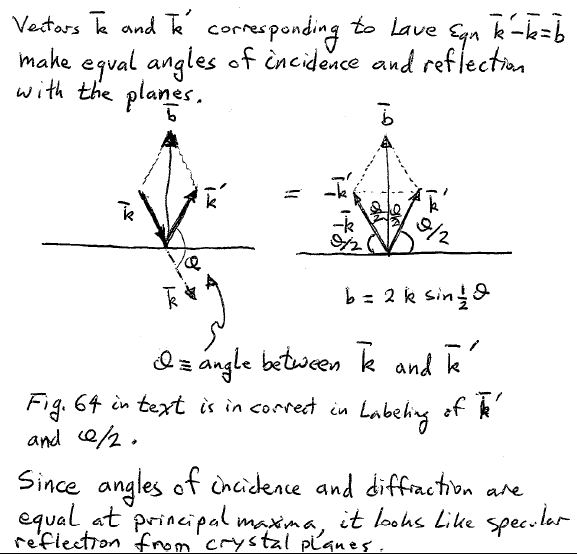 Vectors k̄ and k̄′ corresponding to Laue Eqn k̄′-k̄=b̄
make equal angles of incidence and reflection
with the planes.
b̄
b̄
k̄
k̄′
=
-k̄′
k̄′
-k̄
θ/2
θ/2
θ/2
θ/2
θ
k̄
b = 2 k sin ½ θ
θ ≡ angle between k̄ and k̄′
Fig. 64 in text is in correct in Labeling of k̄′
and θ/2.
Since angles of incidence and diffraction are
equal at principal maxima, it looks like specular
reflection from crystal planes.